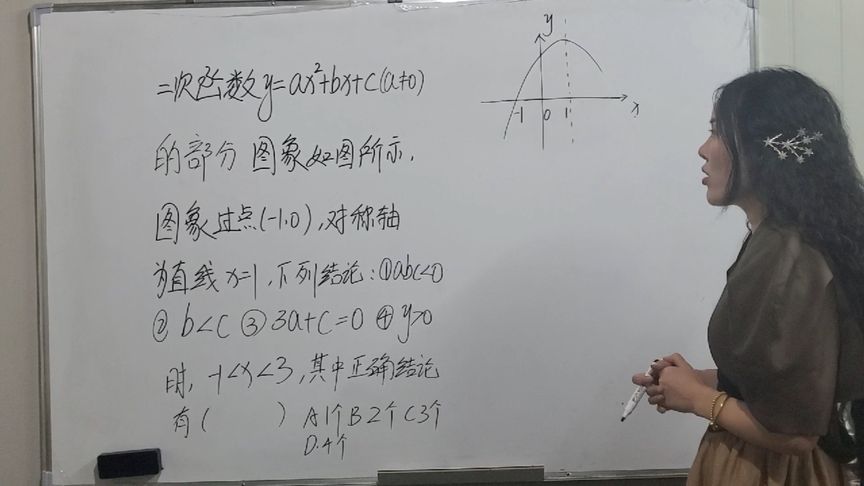 二次函数y=ax²+bx+c(a≠0)
的部分图象如图所示,
图象过点(-1,0),对称轴
为直线x=1,下列结论:①abc<0
②b<c ③3a+c=0 ④y>0
时,-1<x<3,其中正确结论
有( ) A1个 B2个 C3个
D.4个
y
-1 0 1 x